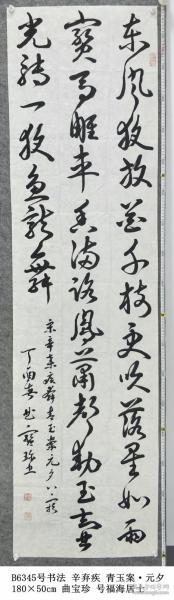 东风夜放花千树更吹落星如雨
寳马雕车香满路鳳蕭声动玉壶
光转一夜鱼龍舞
宋辛弃疾词青玉案元夕
丁酉春曲寳珍书
B6345号书法 辛弃疾 青玉案·元夕
180×50cm 曲宝珍 号福海居士